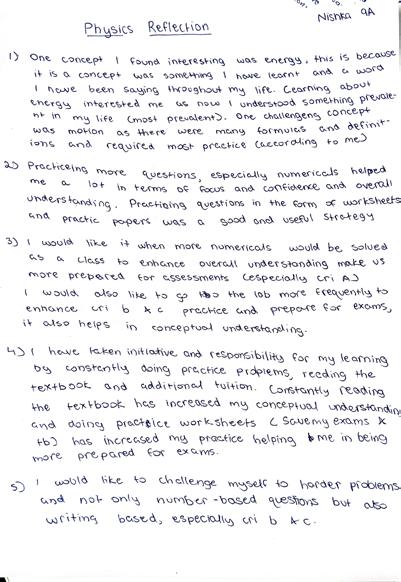 Nishka 9A
Physics Reflection
1) One concept I found interesting was energy, this is because
it is a concept was something I have learnt and a word
I have been saying throughout my life. Learning about
energy interested me as now I understood something prevale-
nt in my life (most prevalent). One challengeng concept
was motion as there were many formulas and definit-
ions and required most practice (according to me)
2) Practiceing more questions, especially numericals helped
me a lot in terms of focus and confidence and overall
understanding. Practicing questions in the form of worksheets
and practic papers was a good and useful strategy
3) I would like it when more numericals would be solved
as a class to enhance overall understanding make us
more prepared for assessments (especially cri A)
I would also like to go to the lab more frequently to
enhance cri b & c practice and prepare for exams,
it also helps in conceptual understanding.
4) I have taken initiative and responsibility for my learning
by constantly doing practice problems, reading the
textbook and additional tuition. Constantly reading
the textbook has increased my conceptual understanding
and doing practice worksheets (Savemy exams &
tb) has increased my practice helping me in being
more prepared for exams.
5) I would like to challenge myself to harder problems
and not only number-based questions but also
writing based, especially cri b & c.